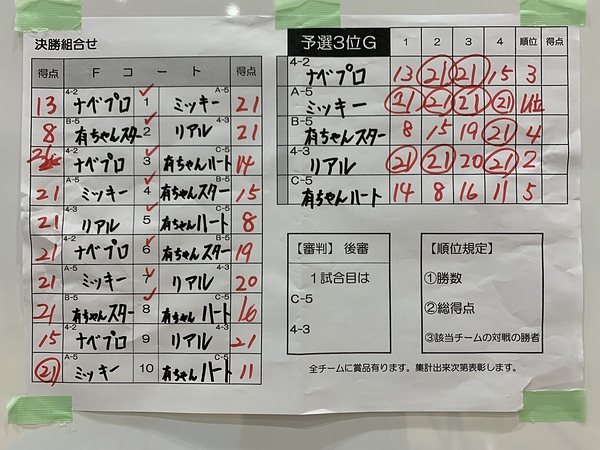 決勝組合せ
得点 Fコート 得点
13 4-2 ナベプロ 1 A-5 ミッキー 21
8 B-5 有ちゃんスター 2 4-3 リアル 21
21 4-2 ナベプロ 3 C-5 有ちゃんハート 14
21 A-5 ミッキー 4 B-5 有ちゃんスター 15
21 4-3 リアル 5 C-5 有ちゃんハート 8
21 4-2 ナベプロ 6 B-5 有ちゃんスター 19
21 A-5 ミッキー 7 4-3 リアル 20
21 B-5 有ちゃんスター 8 C-5 有ちゃんハート 16
15 4-2 ナベプロ 9 4-3 リアル 21
21 A-5 ミッキー 10 C-5 有ちゃんハート 11
予選3位G 1 2 3 4 順位 得点
4-2 ナベプロ 13 21 21 15 3
A-5 ミッキー 21 21 21 21 1位
B-5 有ちゃんスター 8 15 19 21 4
4-3 リアル 21 21 20 21 2
C-5 有ちゃんハート 14 8 16 11 5
【審判】後審
1試合目は
C-5
4-3
【順位規定】
①勝数
②総得点
③該当チームの対戦の勝者
全チームに賞品有ります。集計出来次第表彰します。